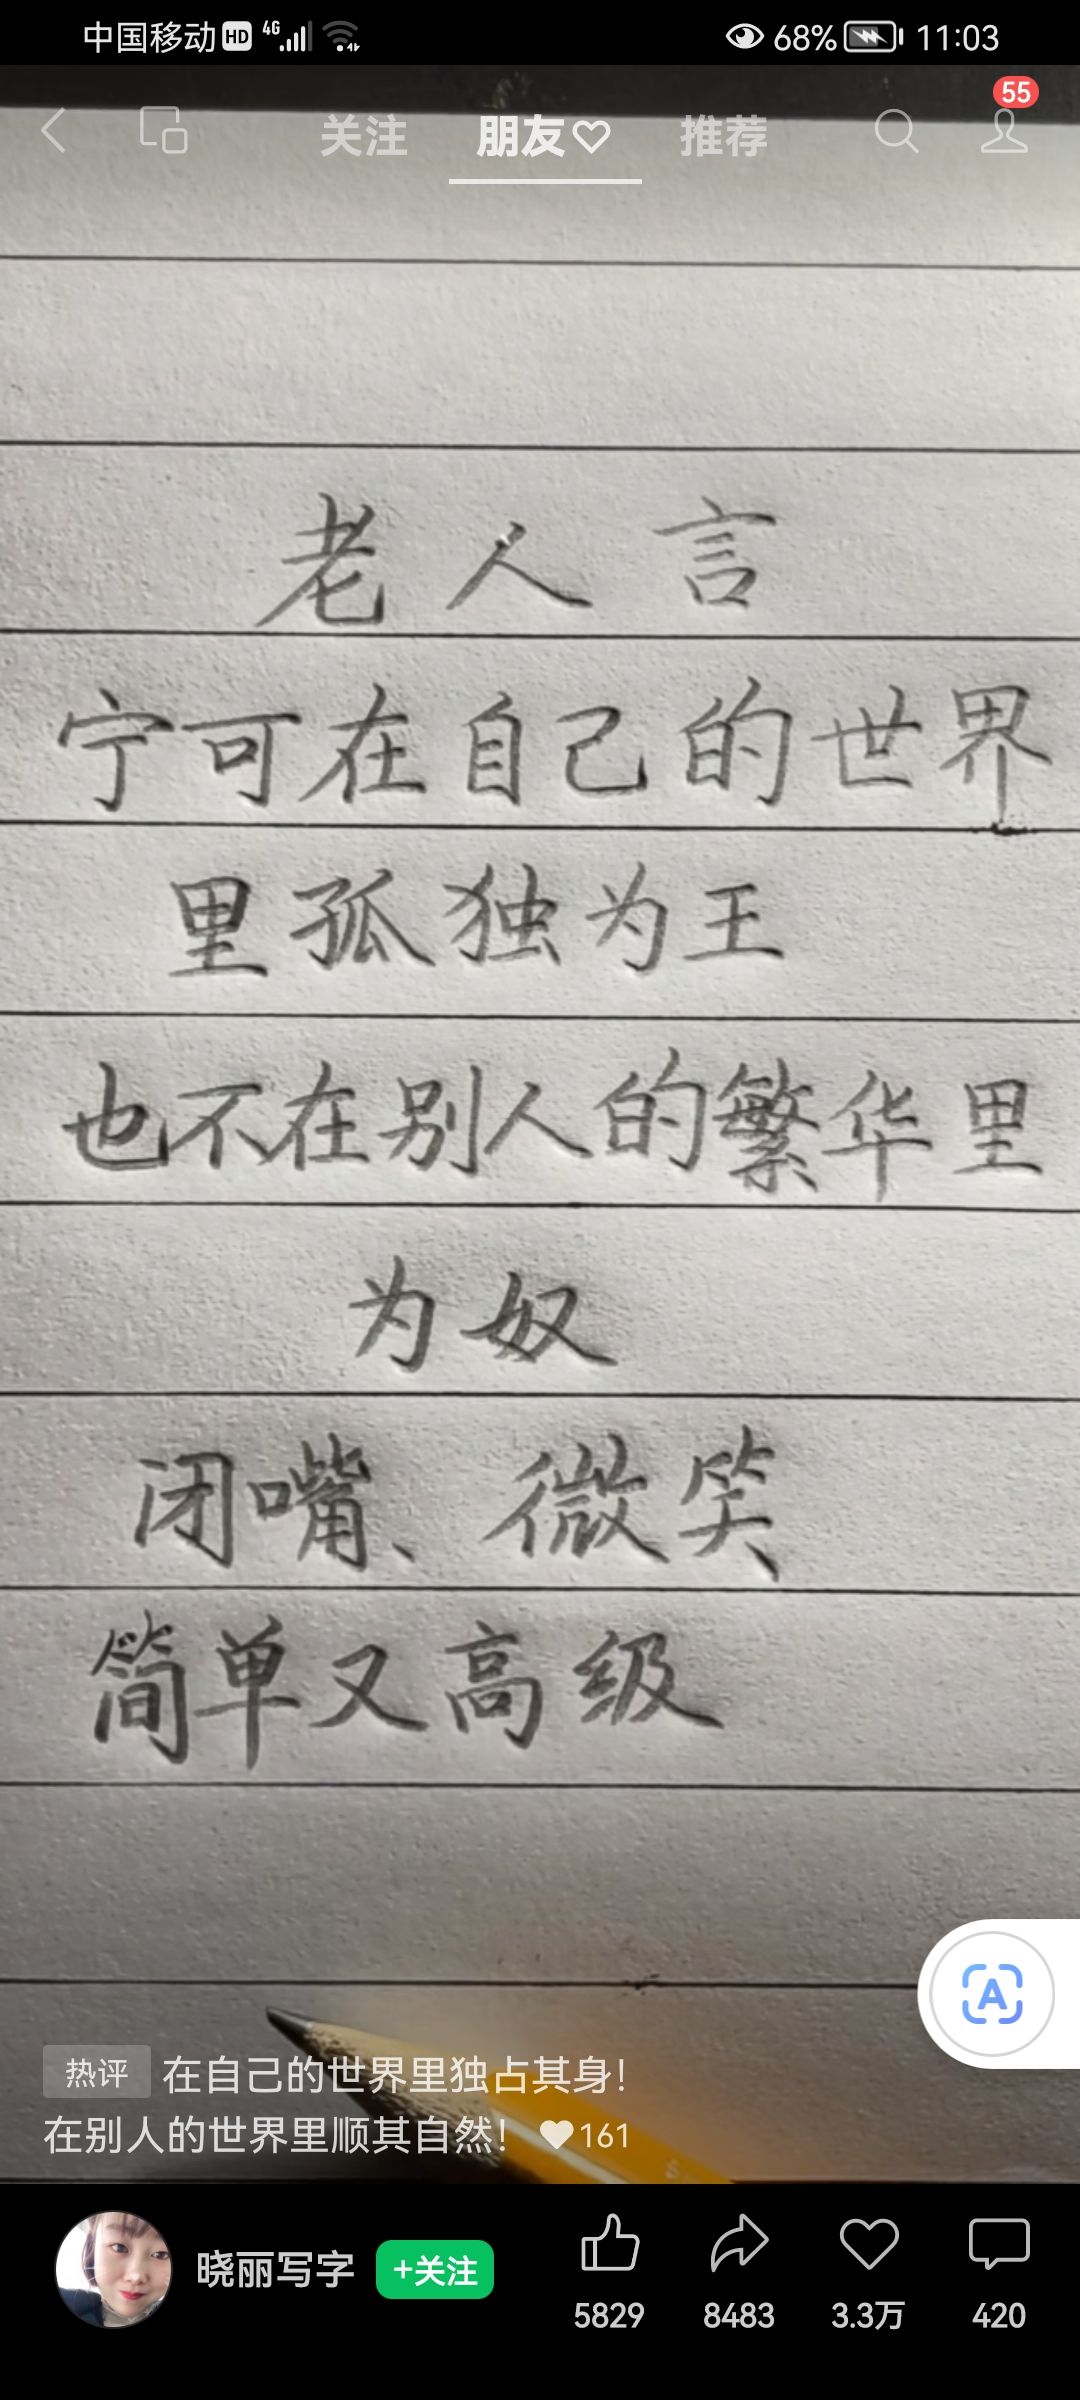 中国移动 HD 4G 68% 11:03
关注 朋友♡ 推荐 55
老人言
宁可在自己的世界
里孤独为王
也不在别人的繁华里
为奴
闭嘴、微笑
简单又高级
A
热评 在自己的世界里独占其身！
在别人的世界里顺其自然！ 161
晓丽写字 +关注 5829 8483 3.3万 420